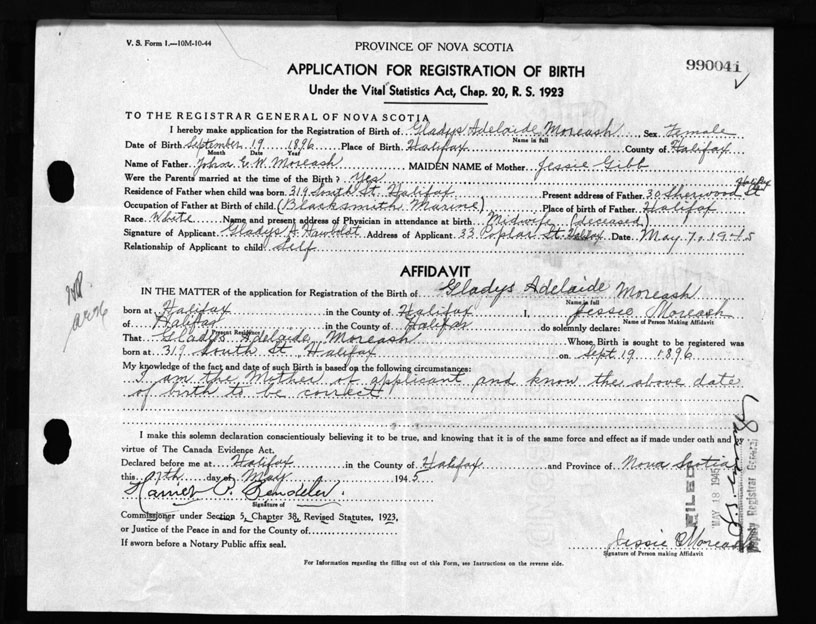 V. S. Form 1.—10M-10-44
PROVINCE OF NOVA SCOTIA
990041
APPLICATION FOR REGISTRATION OF BIRTH
Under the Vital Statistics Act, Chap. 20, R. S. 1923
TO THE REGISTRAR GENERAL OF NOVA SCOTIA
I hereby make application for the Registration of Birth of Gladys Adelaide Moreash Sex Female
Name in full
Date of Birth September 19 1896 Place of Birth Halifax County of Halifax
Month Date Year
Name of Father John W. Moreash MAIDEN NAME of Mother Jessie Gibb
Were the Parents married at the time of the Birth? Yes
Residence of Father when child was born 319 South St. Halifax Present address of Father 30 Sherwood St
Occupation of Father at Birth of child (Blacksmith Marine) Place of birth of Father Halifax
Race White Name and present address of Physician in attendance at birth Midwife (deceased)
Signature of Applicant Gladys A. Address of Applicant 33 Poplar St. Halifax Date May 7, 1945
Relationship of Applicant to child Self
AFFIDAVIT
IN THE MATTER of the application for Registration of the Birth of Gladys Adelaide Moreash
Name in full
born at Halifax in the County of Halifax I, Jessie Moreash
Name of Person Making Affidavit
of Halifax in the County of Halifax do solemnly declare:
Present Residence
That Gladys Adelaide Moreash Whose Birth is sought to be registered was
born at 319 South St. Halifax on Sept. 19 1896
My knowledge of the fact and date of such Birth is based on the following circumstances:
I am the Mother of applicant and know the above date
of birth to be correct
I make this solemn declaration conscientiously believing it to be true, and knowing that it is of the same force and effect as if made under oath and by
virtue of The Canada Evidence Act.
Declared before me at Halifax in the County of Halifax and Province of Nova Scotia
this day of May 1945
Signature of
Commissioner under Section 5, Chapter 38, Revised Statutes, 1923,
or Justice of the Peace in and for the County of
If sworn before a Notary Public affix seal.
Jessie Moreash
Signature of Person making Affidavit
FILED
MAY 18 194
Deputy Registrar General
For Information regarding the filling out of this Form, see Instructions on the reverse side.